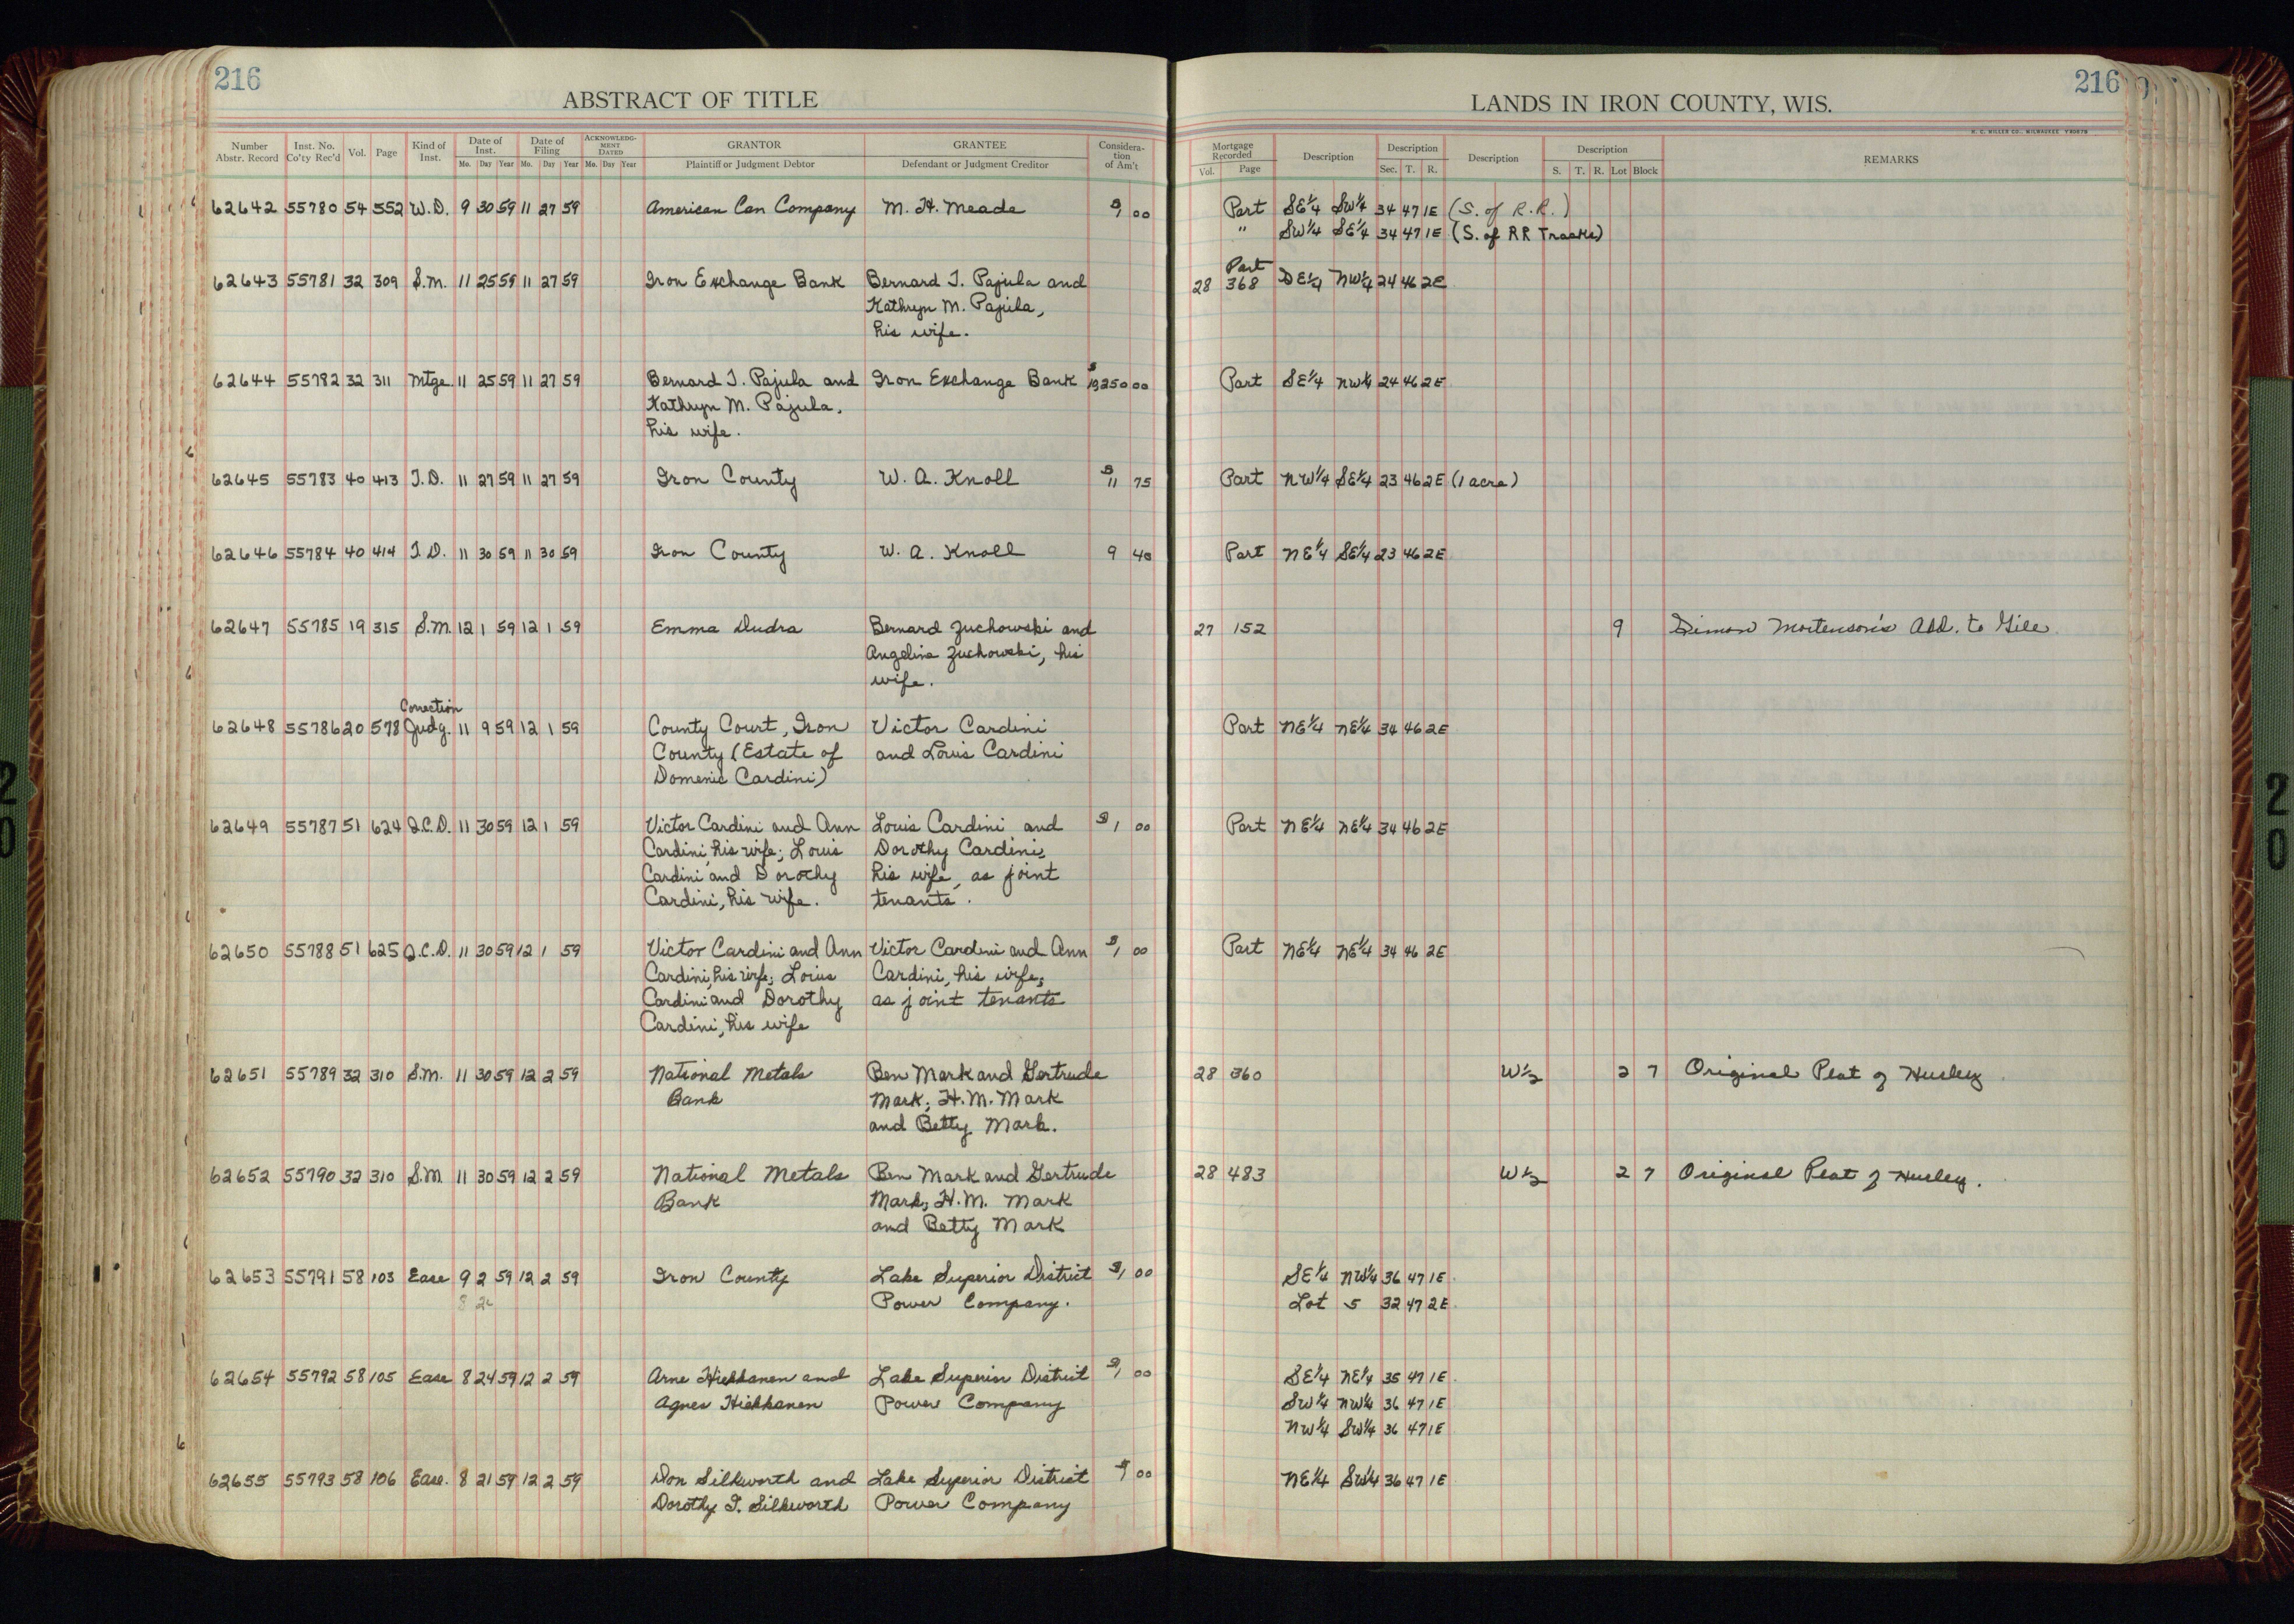 216
ABSTRACT OF TITLE
Number Abstr. Record Inst. No. Co'ty Rec'd Vol. Page Kind of Inst. Date of Inst. Mo. Day Year Date of Filing Mo. Day Year ACKNOWLEDG-MENT DATED Mo. Day Year GRANTOR Plaintiff or Judgment Debtor GRANTEE Defendant or Judgment Creditor Considera-tion of Am't
216
LANDS IN IRON COUNTY, WIS.
H. C. MILLER CO., MILWAUKEE
Mortgage Recorded Vol. Page Description Description Sec. T. R. Description Description S. T. R. Lot Block REMARKS
62642 55780 54 552 W.D. 9 30 59 11 27 59 American Can Company M. H. Meade $1 00 Part SE¼ SW¼ 34 47 1E (S. of R.R.)
" SW¼ SE¼ 34 47 1E (S. of RR Tracks)
62643 55781 32 309 S.M. 11 25 59 11 27 59 Iron Exchange Bank Bernard J. Pajula and 28 Part 368 SE¼ NW¼ 24 46 2E
Kathryn M. Pajula,
his wife.
62644 55782 32 311 Mtge 11 25 59 11 27 59 Bernard J. Pajula and Iron Exchange Bank $13250 00 Part SE¼ NW¼ 24 46 2E
Kathryn M. Pajula,
his wife.
62645 55783 40 413 T.D. 11 27 59 11 27 59 Iron County W. A. Knoll $11 75 Part NW¼ SE¼ 23 46 2E (1 acre)
62646 55784 40 414 T.D. 11 30 59 11 30 59 Iron County W. A. Knoll 9 40 Part NE¼ SE¼ 23 46 2E
62647 55785 19 315 S.M. 12 1 59 12 1 59 Emma Dudra Bernard Zuchowski and 27 152 9 Simon Mortenson's Add. to Gile
Angeline Zuchowski, his
wife.
Correction
62648 55786 20 578 Judg. 11 9 59 12 1 59 County Court, Iron Victor Cardini Part NE¼ NE¼ 34 46 2E
County (Estate of and Louis Cardini
Domenic Cardini)
62649 55787 51 624 Q.C.D. 11 30 59 12 1 59 Victor Cardini and Ann Louis Cardini and $1 00 Part NE¼ NE¼ 34 46 2E
Cardini, his wife; Louis Dorothy Cardini,
Cardini and Dorothy his wife, as joint
Cardini, his wife. tenants.
62650 55788 51 625 Q.C.D. 11 30 59 12 1 59 Victor Cardini and Ann Victor Cardini and Ann $1 00 Part NE¼ NE¼ 34 46 2E
Cardini, his wife; Louis Cardini, his wife,
Cardini and Dorothy as joint tenants
Cardini, his wife
62651 55789 32 310 S.M. 11 30 59 12 2 59 National Metals Ben Mark and Gertrude 28 360 W½ 2 7 Original Plat of Hurley
Bank Mark; H.M. Mark
and Betty Mark.
62652 55790 32 310 S.M. 11 30 59 12 2 59 National Metals Ben Mark and Gertrude 28 483 W½ 2 7 Original Plat of Hurley.
Bank Mark; H.M. Mark
and Betty Mark
62653 55791 58 103 Ease 9 2 59 12 2 59 Iron County Lake Superior District $1 00 SE¼ NW¼ 36 47 1E
Power Company. Lot 5 32 47 2E
62654 55792 58 105 Ease 8 24 59 12 2 59 Arne Hiekkanen and Lake Superior District $1 00 SE¼ NE¼ 35 47 1E
Agnes Hiekkanen Power Company SW¼ NW¼ 36 47 1E
NW¼ SW¼ 36 47 1E
62655 55793 58 106 Ease. 8 21 59 12 2 59 Don Silkworth and Lake Superior District $1 00 NE¼ SW¼ 36 47 1E
Dorothy I. Silkworth Power Company